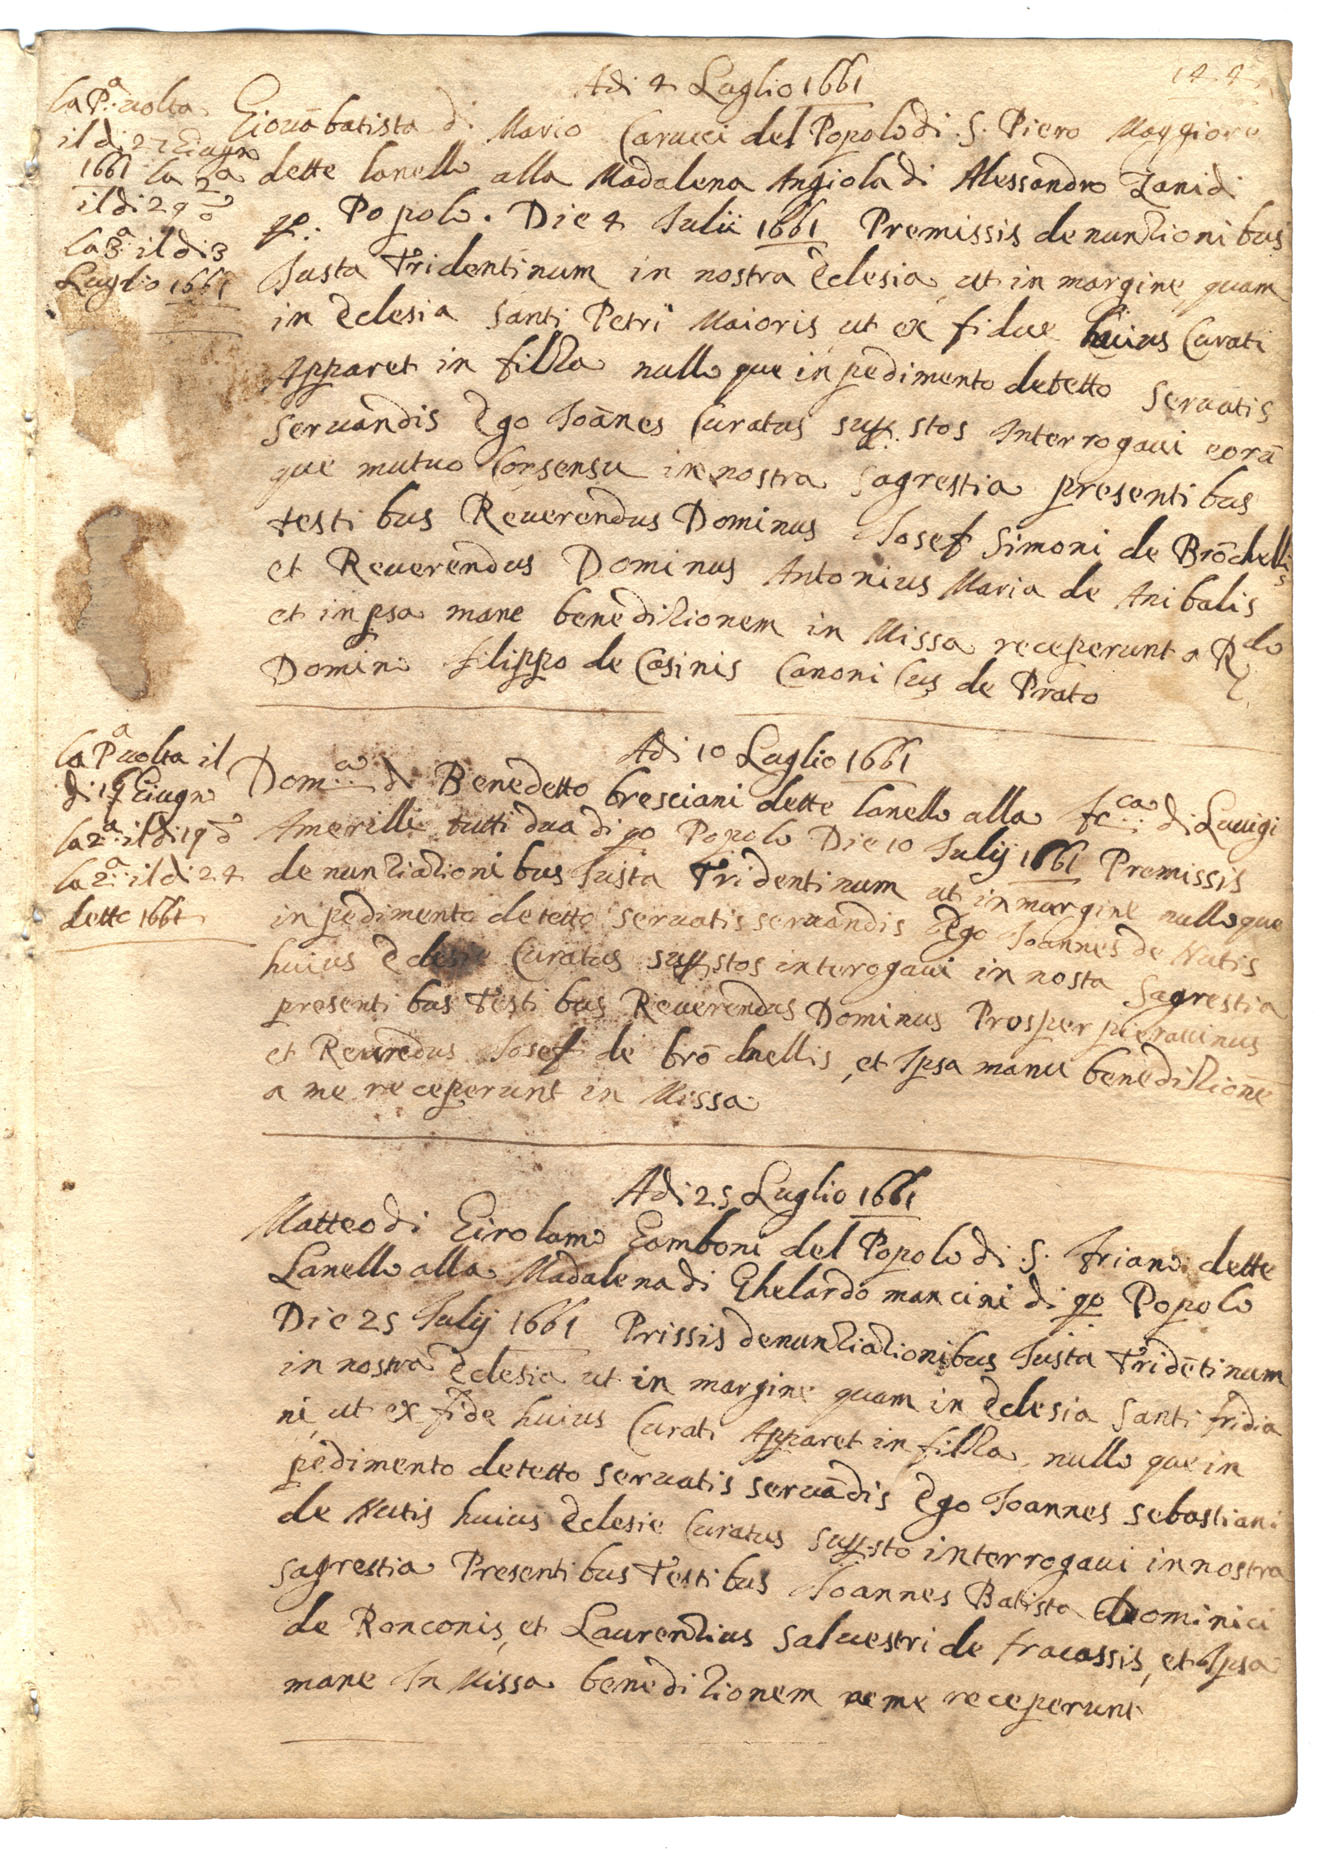 144
Adi 4 Luglio 1661
la P.a uolta
il di 27 Giugn
1661 la 2a
il di 29 d°
la 3a il di 3
Luglio 1661
Giouābatista di Mario Carucci del Popolo di S. Piero Maggiore
dette lanello alla Madalena Angiola di Alessandro Zanidi
qo: Popolo. Die 4 Iulii 1661 Premissis denunzionibus
Iusta Tridentinum in nostra Eclesia, ut in margine, quam
in Eclesia Santi Petri Maioris, ut ex fidue huius Curati
Apparet in filza nullo que inpedimento detetto seruatis
seruandis Ego Ioānes Curatus supp. stos Interrogaui eorū
que mutuo Consensu in nostra Sagrestia presentibus
testibus Reuerendus Dominus Iosef Simoni de Brōchellis
et Reuerendus Dominus Antonius Maria de Anibalis
et in psa mane benedizionem in Missa receperunt a Rdo
Domino Filippo de Casinis Canonicus de Prato
Adi 10 Luglio 1661
la P.a uolta il
di 16 Giugno
la 2a il di 19 d°
la 2a il di 24
detto 1661
Dom.co di Benedetto bresciani dette lanello alla fc.ca di Luuigi
Amerilli tutti dua di qo Popolo Die 10 Iulij 1661 Premissis
denunziazionibus Iusta Tridentinum ut in margine nulloque
inpedimento detetto seruatis seruandis Ego Ioannes de Nutis
huius Eclesie Curatus supp. stos interogaui in nosta Sagrestia
presentibus Testibus Reuerendus Dominus Prosper pierauinus
et Reueredus Iosef de brōchellis, et Ipsa mane benedizionē
a me receperunt in Missa
Adi 25 Luglio 1661
Matteo di Girolamo Gamboni del Popolo di S. Friano dette
Lanello alla Madalena di Ghelardo mancini di qo Popolo
Die 25 Iulij 1661 Prissis denunziazionibus Iusta Tridētinum
in nostra Eclesia ut in margine quam in Eclesia Santi fridia
ni, ut ex fide huius Curati Apparet in filza, nullo que in
pedimento detetto seruatis seruādis Ego Ioannes Sebastiani
de Nutis huius Eclesie Curatus supp. sto interrogaui in nostra
sagrestia Presentibus Testibus Ioannes Batista Dominici
de Ronconis, et Laurenzius Saluestri de fracassis, et Ipsa
mane In Missa benedizionem a me receperunt